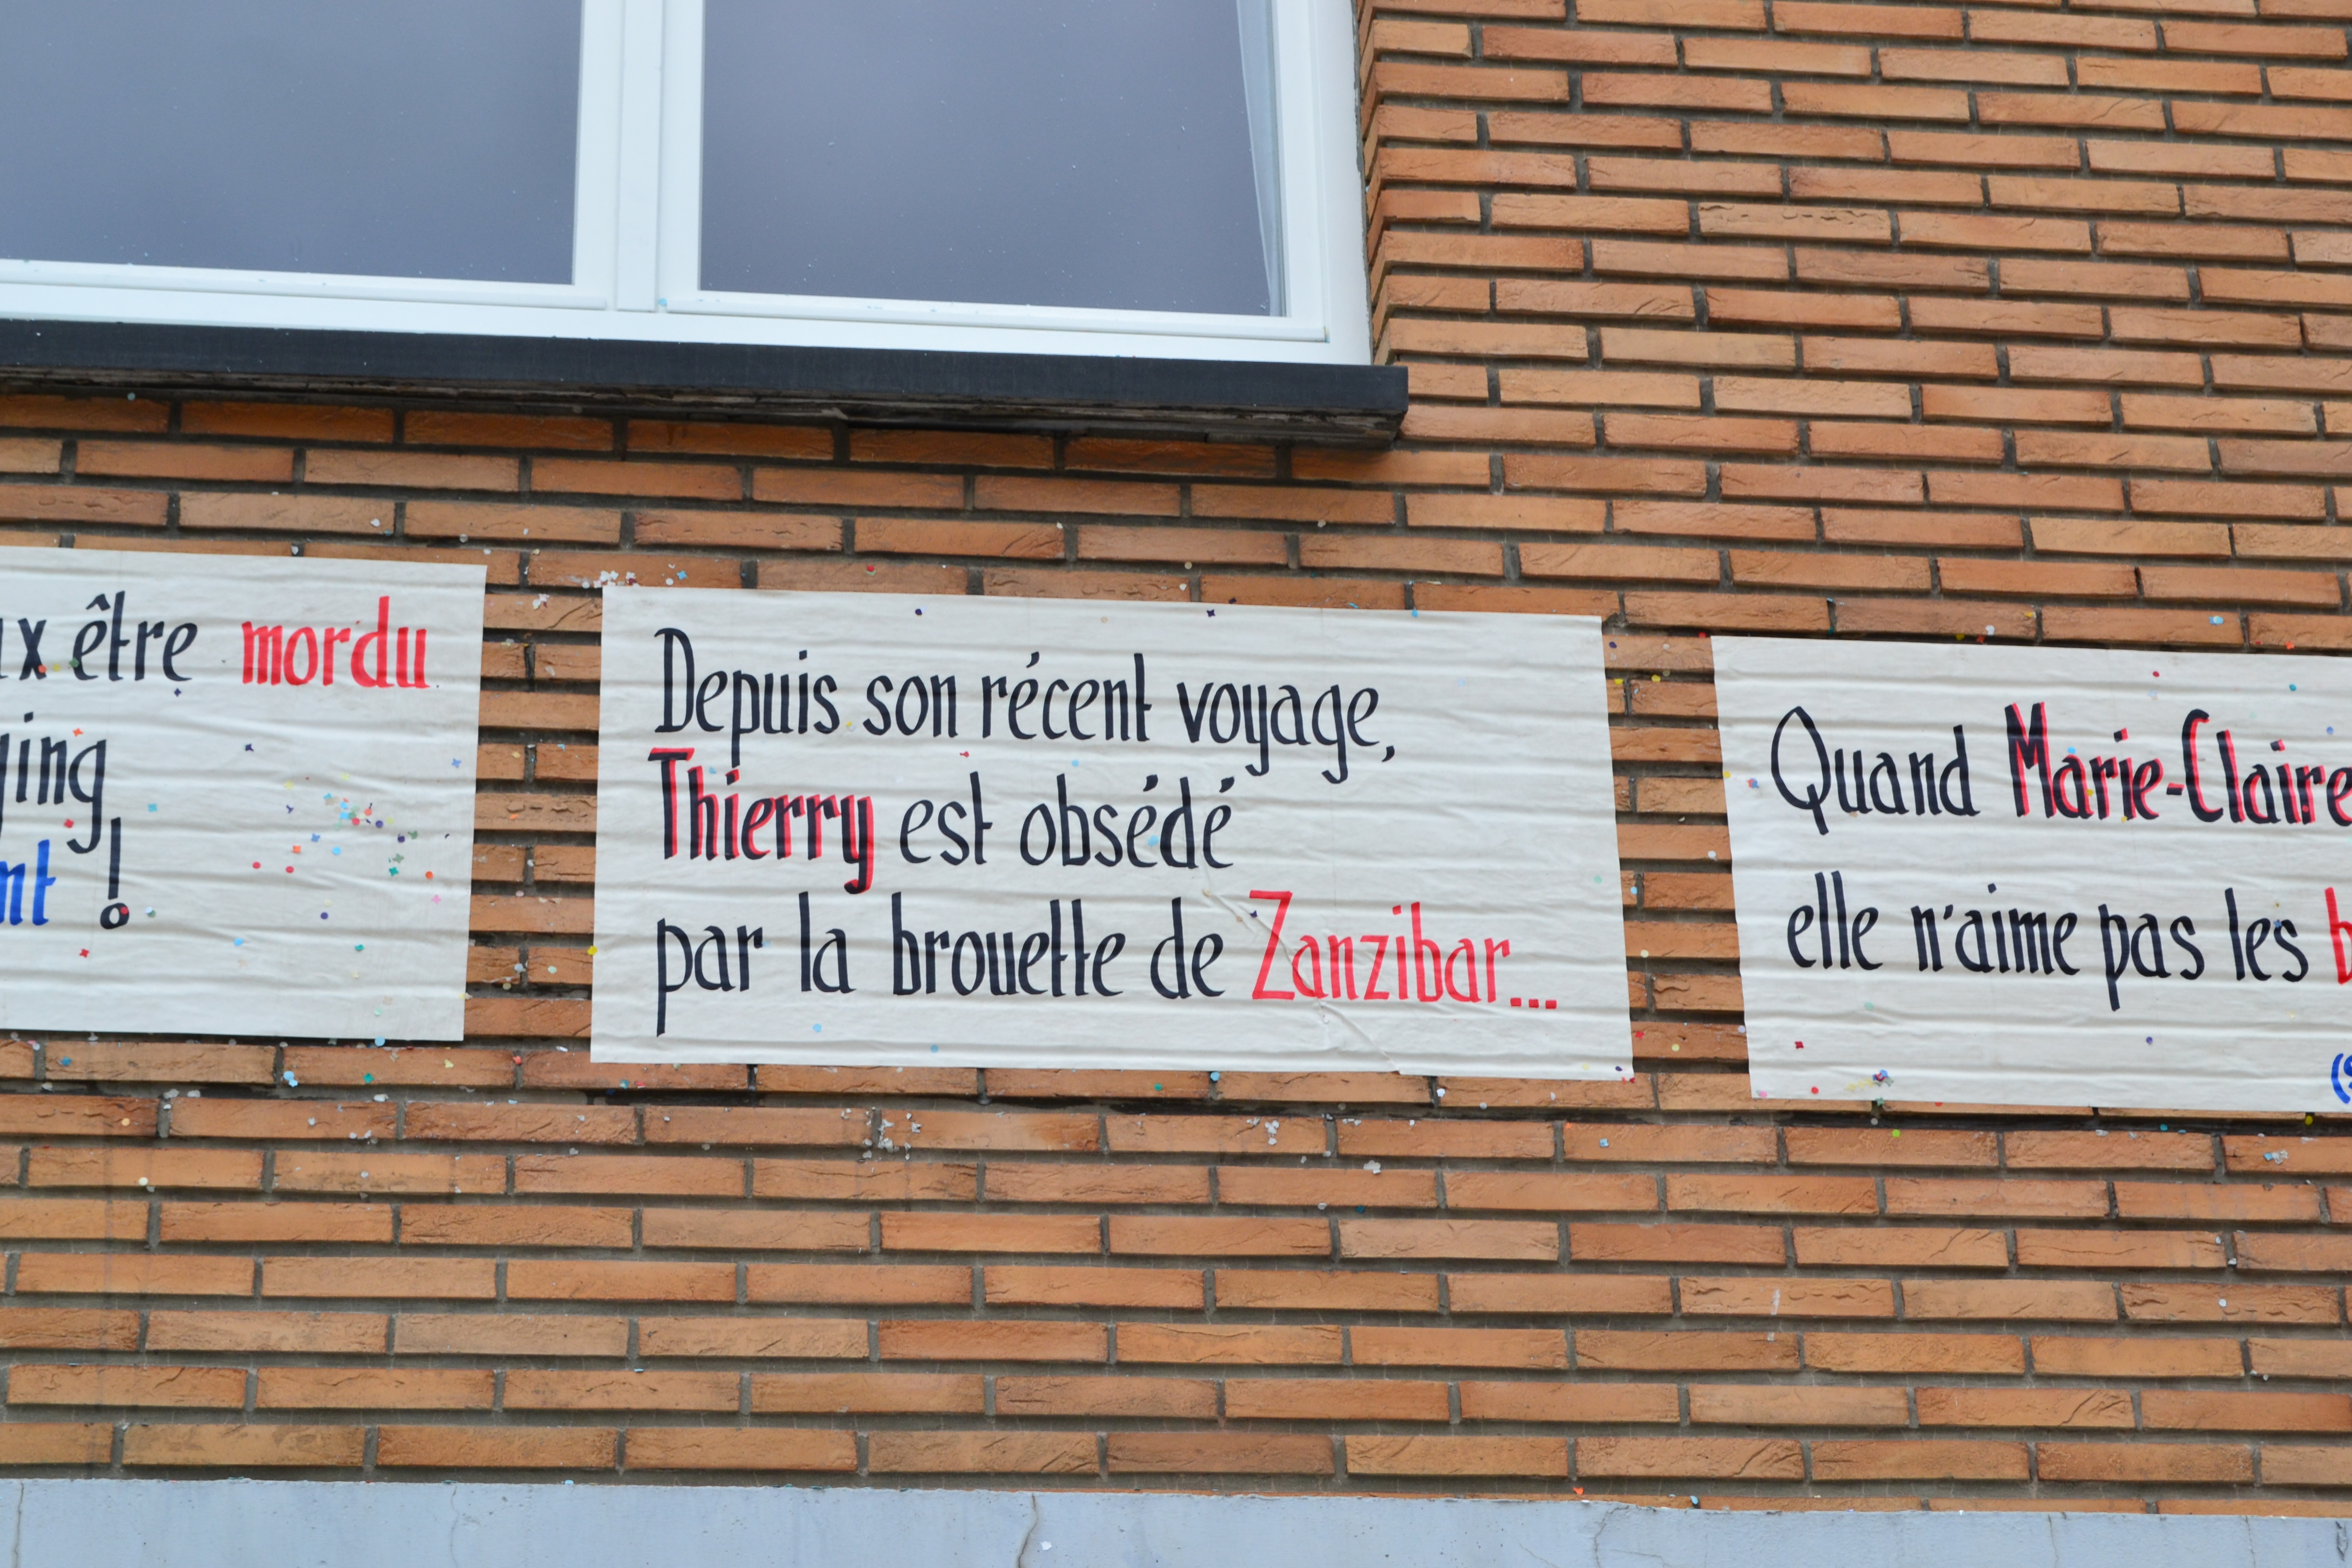 être mordu
!
Depuis son récent voyage,
Thierry est obsédé
par la brouette de Zanzibar...
Quand Marie-Claire
elle n'aime pas les